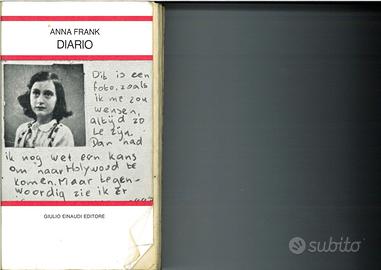 ANNA FRANK
DIARIO
Dit is een
foto, zoals
ik me zou
wensen,
altijd zo
te zijn.
Dan had
ik nog wel een kans
om naar Holywood te
komen. Maar tegen-
woordig zie ik er
GIULIO EINAUDI EDITORE
subito